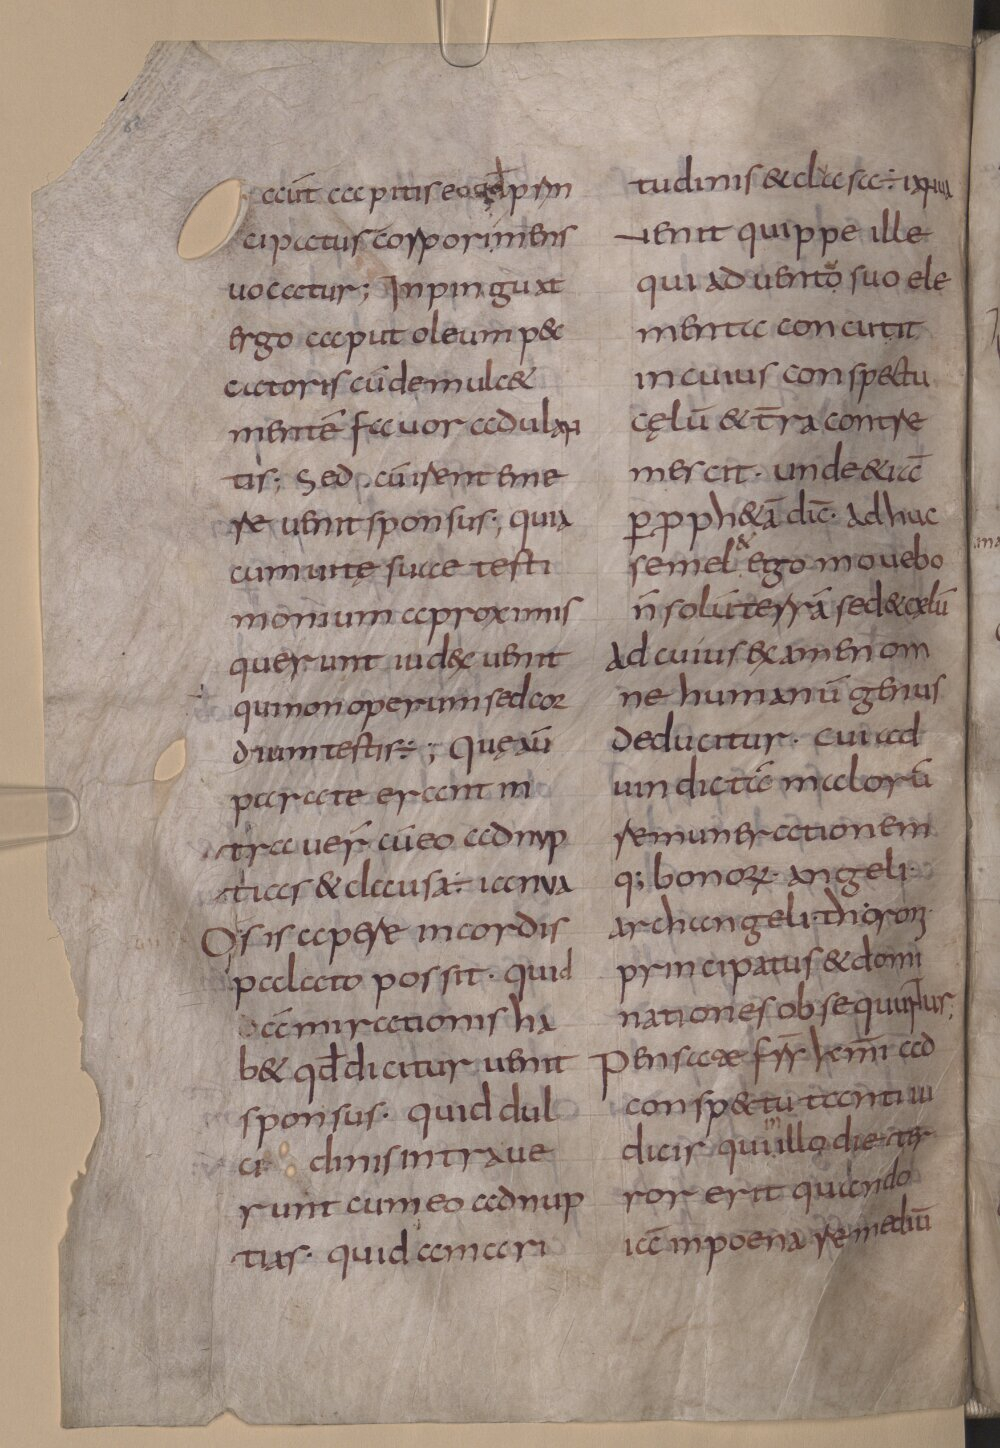 aut capitis eo qd prin
cipatus corporis mens
uocatur; Inpinguat
ergo caput oleum pec
catoris cū demulcet
mentē fauor adulan
tis; Sed cū irent eme
re uenit sponsus; quia
cum uitę suae testi
monium a proximis
querunt iudex uenit
qui non operum sed cor
dium testis÷; Quę aū
paratae erant in
trauer̄ cū eo ad nup
tias & clausa÷ ianua
O si sapere in cordis
palato possit· quid
admirationis ha
b& qd̄ dicitur uenit
sponsus· quid dul
ce dinis intraue
runt cum eo ad nup
tias· quid amari
tudinis & clausa÷ ianua
uenit quippe ille
qui aduentō suo ele
menta concutit
in cuius conspectu
cęlū & t̄ra contre
mescit· unde & iā
ꝑ proph&ā dic̄· adhuc
semel & ego mouebo
n̄ solū terrā sed & cęlū
Ad cuius examen om
ne humanū genus
deducitur· cui ad
uindictā malorū
remunerationem
q; bonoꝝ· angeli·
archangeli· throni
principatus & domi
nationes obsequuntur;
Pensate fr̄r k̄mi ad
conspectu tanti iu
dicis qui in illo die ter
ror erit quando
iā in poena remediū